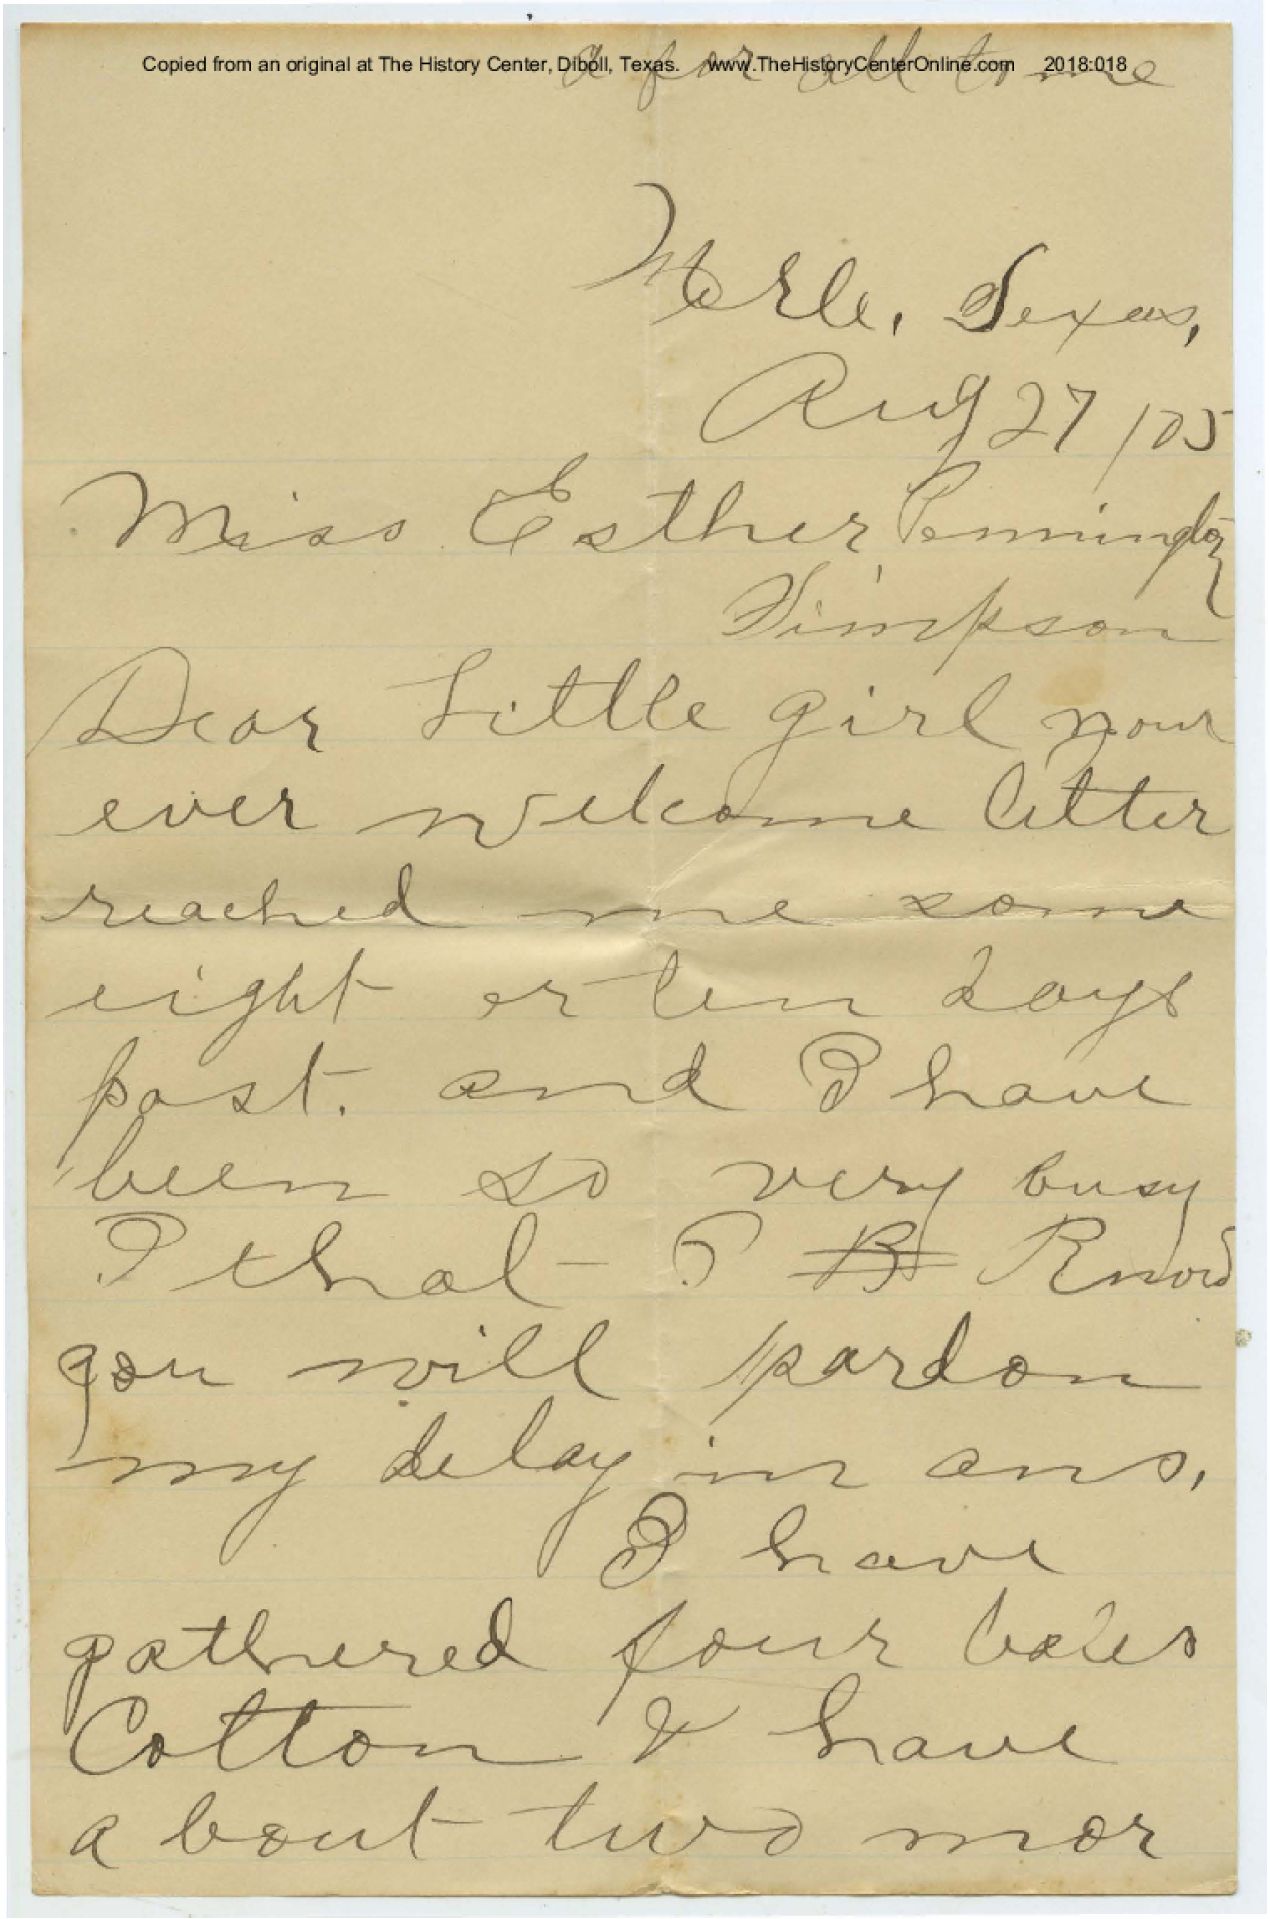 Copied from an original at The History Center, Diboll, Texas. www.TheHistoryCenterOnline.com 2018:018
a for all to me
Merle, Texas,
Aug 27 /05
Miss Esther Pennington
Timpson
Dear Little girl your
ever welcome letter
reached me some
eight or ten days
past. and I have
been so very busy
I that I Know
you will pardon
my delay in ans,
I have
gathered four bales
Cotton & have
about two mor